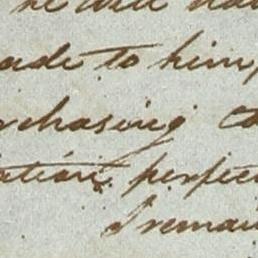 he will
ade to him,
rchasing
ation perfec
I remain